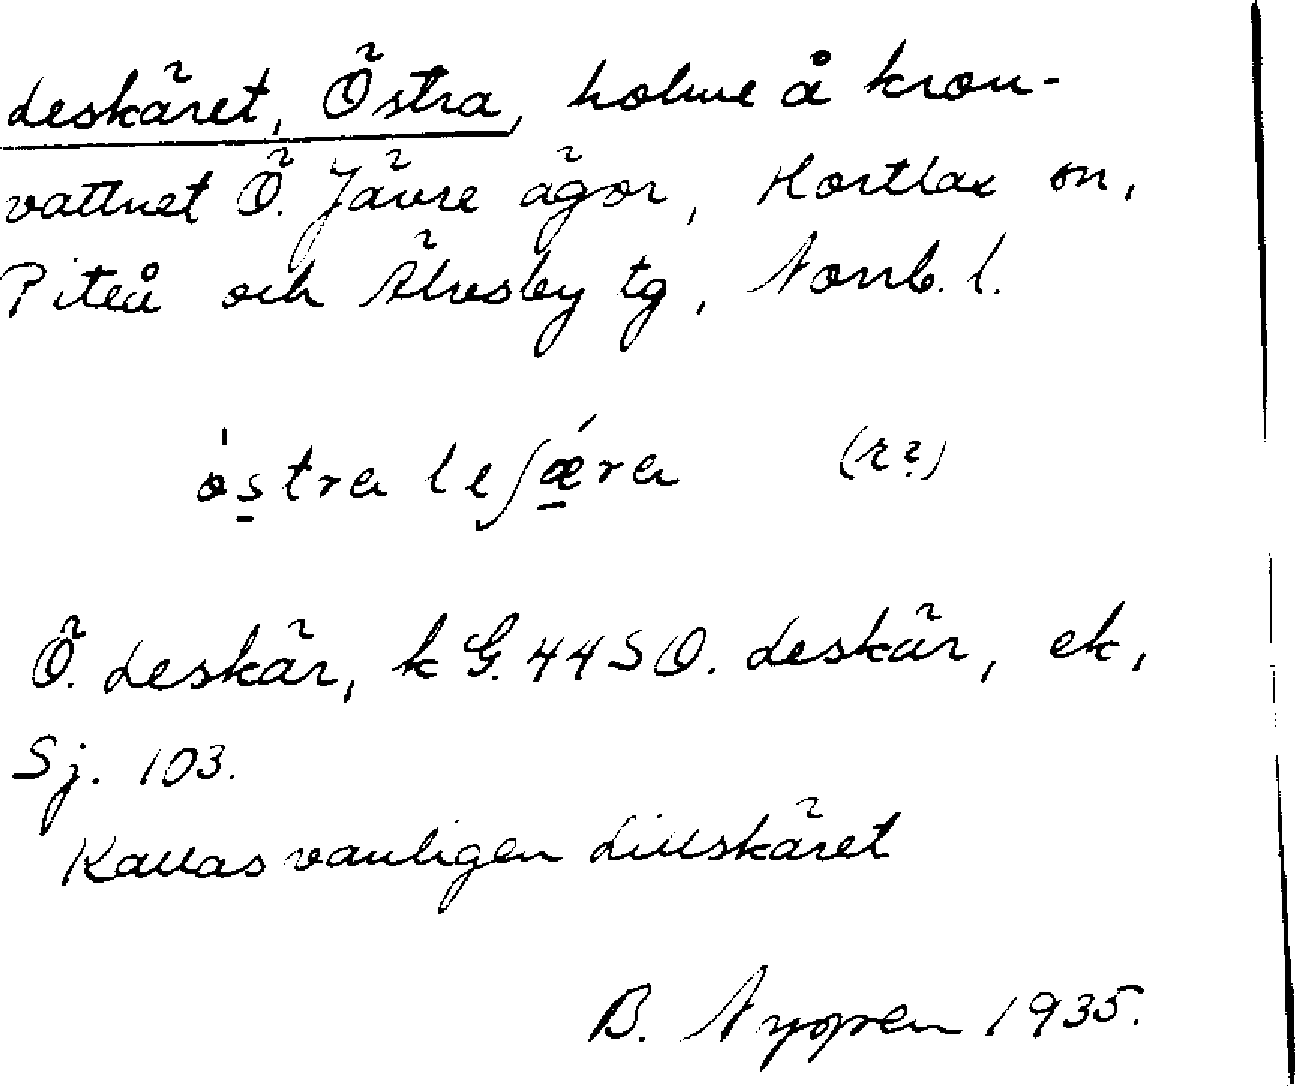 Leskäret, Östra, holme å kron-
vattnet Ö. Jävre ägor, Hortlax sn,
Piteå och Älvsby tg, Norrb. l.
östra leʃæra (r?)
Ö. Leskär, k G. 44 S Ö. Leskär, ek,
Sj. 103.
Kallas vanligen Lillskäret
B. Nygren 1935.